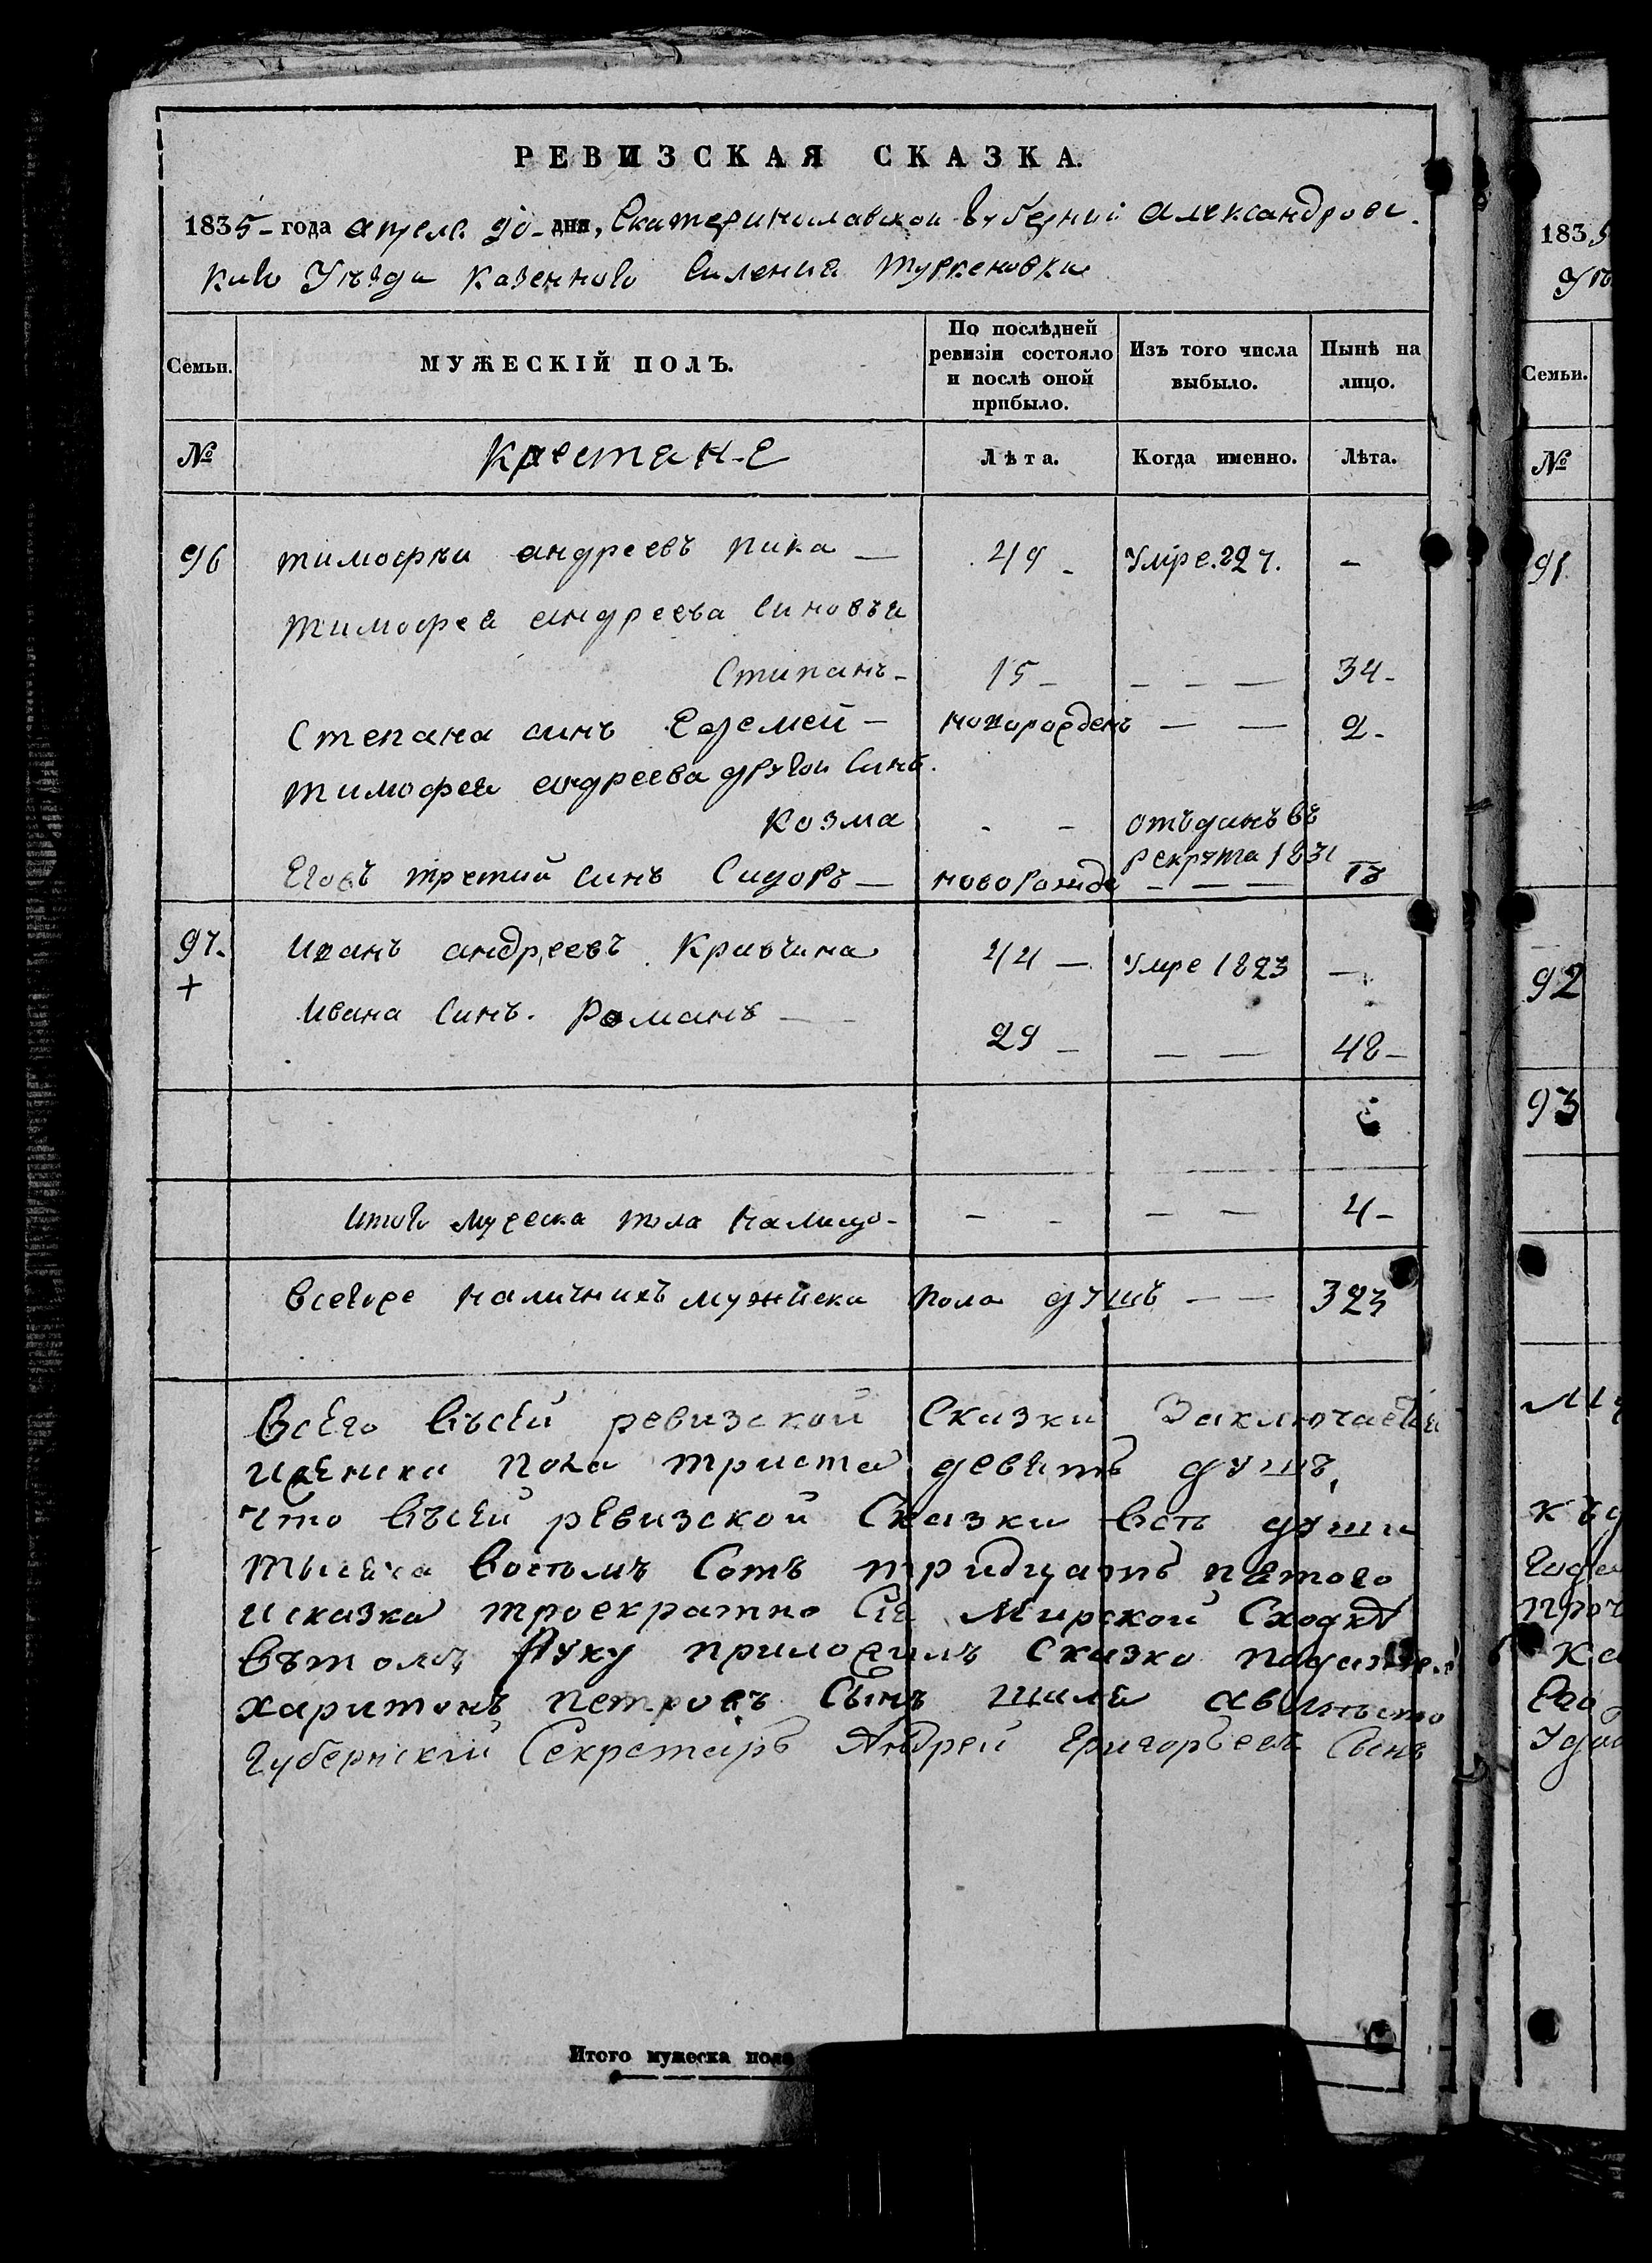 РЕВИЗСКАЯ СКАЗКА.
1835 года апреля 20 дня, Екатеринославской Губернии Александровс
каго Уезда казенного Селения Туркеновки
Семьи. МУЖЕСКІЙ ПОЛЪ. По послѣдней ревизіи состояло и послѣ оной прибыло. Изъ того числа выбыло. Нынѣ на лицо.
№ Крестяне Лѣта. Когда именно. Лѣта.
96 тимофѣи андреевъ пика — 49 - Умре. 827. -
тимофея андреева синовъя
Стипанъ - 15 - - - — 34 -
Степана синъ Ефемей — новорожденъ — — 2 -
тимофея андреева другои Синъ.
Козма - - отъданъ въ
рекрута 1831
Еговъ третий синъ Сидоръ — новорожде - — —
97. Иванъ андреевъ Кривчина 44 — Умре 1823 —
+
Ивана Синъ. Романъ — — 29 - — — 48 -
Итого мужеска пола налицо - - - - — 4 -
Всегоже наличнихъ мужйска пола душъ - — 323
Всего въсей ревизской Сказки Заключается
пола триста девять душъ,
что въсей ревизской Сказки всть души
тысяча востьмъ Сотъ тридцать пятого
и сказка троекратно Мирской Сходкѣ
въ томъ руку приложилъ Сказко
харитонъ петровъ Сынъ шиля
Губернский Секретарь Андрей Григорьевъ Сынъ
Итого мужеска пола
1835
Семьи.
№
91
92
93